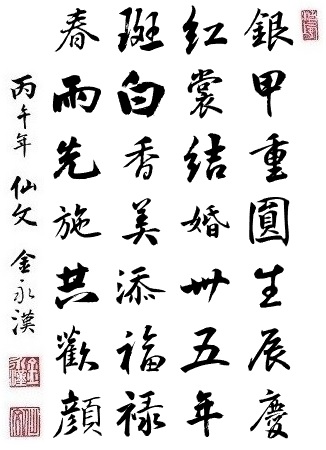 銀甲重圓生辰慶
紅裳結婚卅五年
斑白香美添福禄
春雨先施共歡顔
丙午年 仙文 金永漢